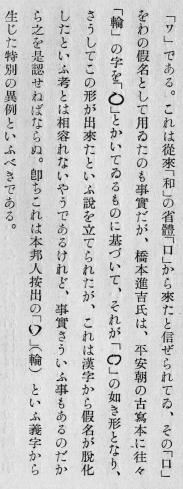 「ワ」である。これは從來「和」の省體「口」から來たと信ぜられてゐ、その「口」
をわの假名として用ゐたのも事實だが、橋本進吉氏は、平安朝の古寫本に往々
「輪」の字を「〇」とかいてゐるものに基づいて、それが「〇」の如き形となり、
さうしてこの形が出來たといふ說を立てられたが、これは漢字から假名が脫化
したといふ考とは相容れないやうであるけれど、事實さういふ事もあるのだか
ら之を是認せねばならぬ。卽ちこれは本邦人按出の「〇」(輪)といふ義字から
生じた特別の異例といふべきである。